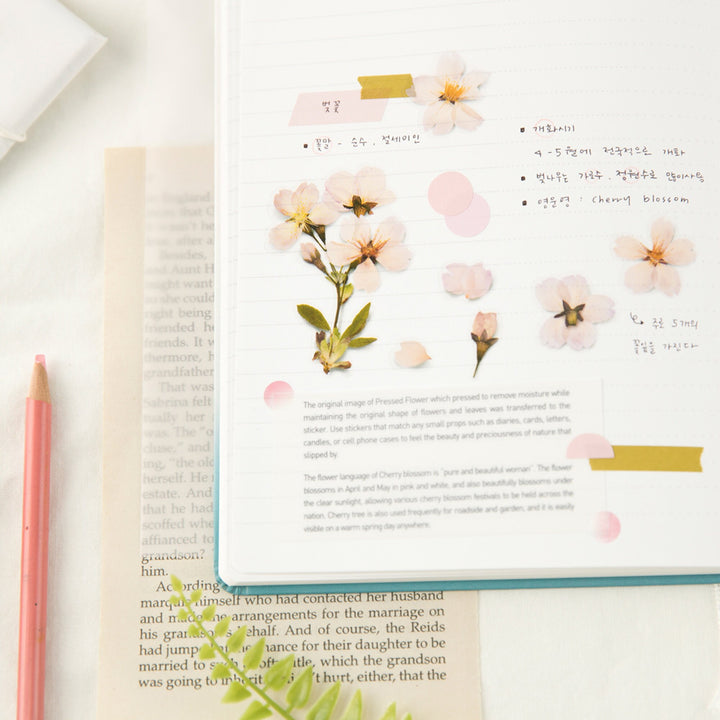 벚꽃
꽃말 - 순수, 절세미인
개화시기
4 - 5월에 전국적으로 개화
벚나무는 가로수, 정원수로 많이사용
영문명 : cherry blossom
주로 5개의
꽃잎을 가진다
The original image of Pressed Flower which pressed to remove moisture while
maintaining the original shape of flowers and leaves was transferred to the
sticker. Use stickers that match any small props such as diaries, cards, letters,
candles, or cell phone cases to feel the beauty and preciousness of nature that
slipped by.
The flower language of Cherry blossom is "pure and beautiful woman". The flower
blossoms in April and May in pink and white, and also beautifully blossoms under
the clear sunlight, allowing various cherry blossom festivals to be held across the
nation. Cherry tree is also used frequently for roadside and garden, and it is easily
visible on a warm spring day anywhere.
in England
that was
wasn't he
after a
Besides,
and Aunt H
might want
she could
right being
friended he
friends. It w
thermore, h
grandfather
That was
Sabrina felt
tually her
was. The "o
chase," and
ing, "the old
herself. He
estate. And
that he had
scoffed whe
affianced to
grandson?
him.
According
marquis who had contacted her husband
and made the arrangements for the marriage on
his grandson's behalf. And of course, the Reids
had jumped at the chance for their daughter to be
married to such a lofty title, which the grandson
was going to inherit. It didn't hurt, either, that the